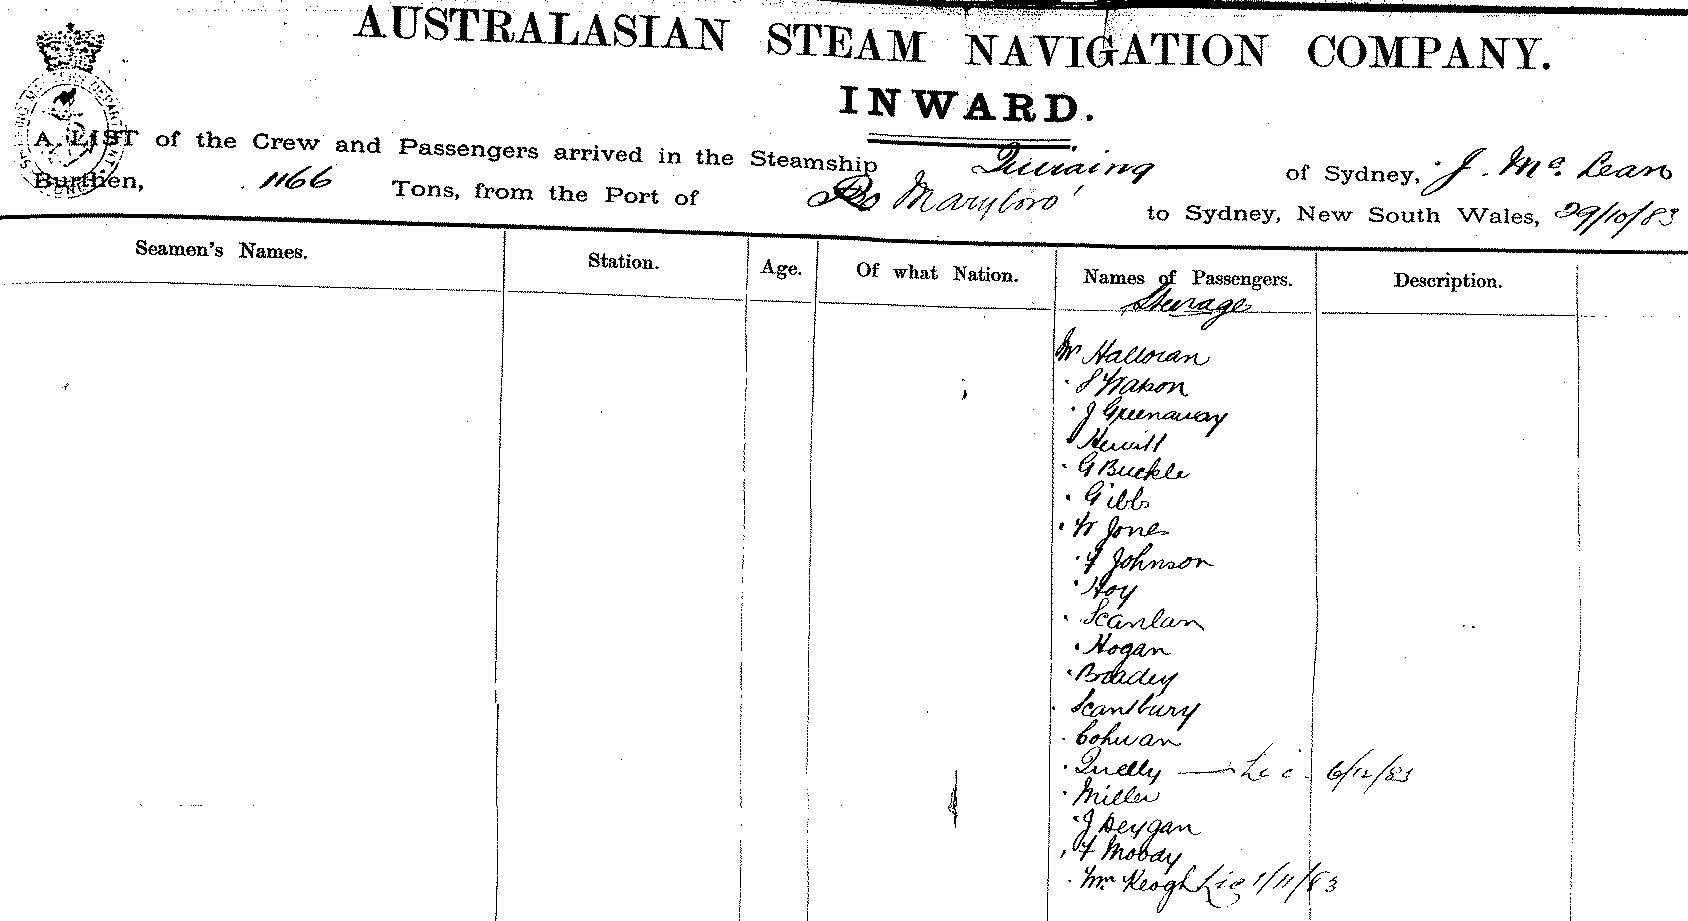 AUSTRALASIAN STEAM NAVIGATION COMPANY.
INWARD.
A LIST of the Crew and Passengers arrived in the Steamship Quiraing of Sydney, J. Mc. Lean
Burthen, 1166 Tons, from the Port of Maryboro' to Sydney, New South Wales, 29/10/83
Seamen's Names. Station. Age. Of what Nation. Names of Passengers. Description.
Steerage
Mr Halloran
" S Watson
" J Greenaway
" Hewitt
" G Buckle
" Gibbs
" W Jones
" F Johnson
" Hoy
" Scanlan
" Hogan
" Bradey
" Scantbury
" Cohuan
" Quelly — Lic. 6/12/83
" Miller
" J Deygan
" F Moody
" Mrs Keogh Lic 1/11/83